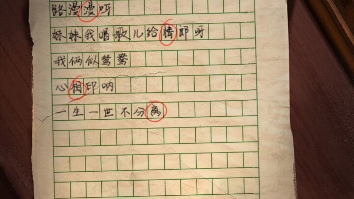 路漫漫吓
妹妹我唱歌儿给情郎听
我俩似鸳鸯
心相印呐
一生一世不分离